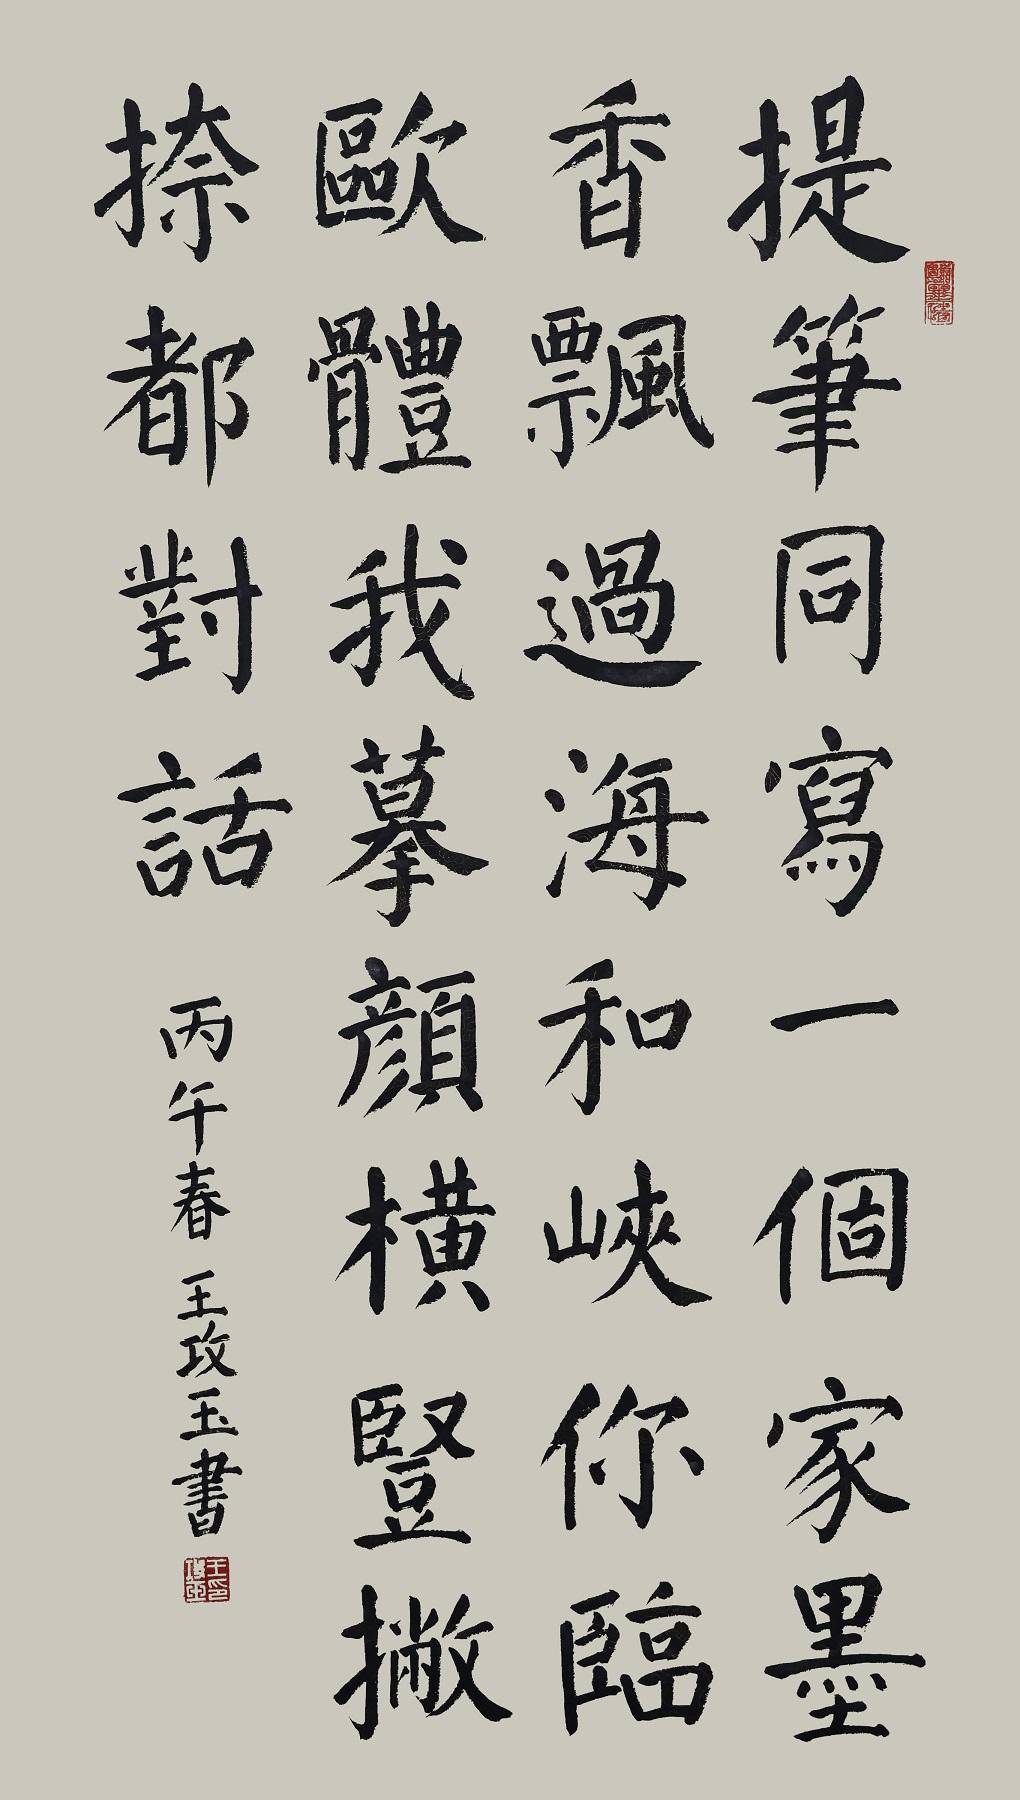 提筆同寫一個家墨
香飄過海和峽你臨
歐體我摹顏橫豎撇
捺都對話
丙午春 王攻玉書